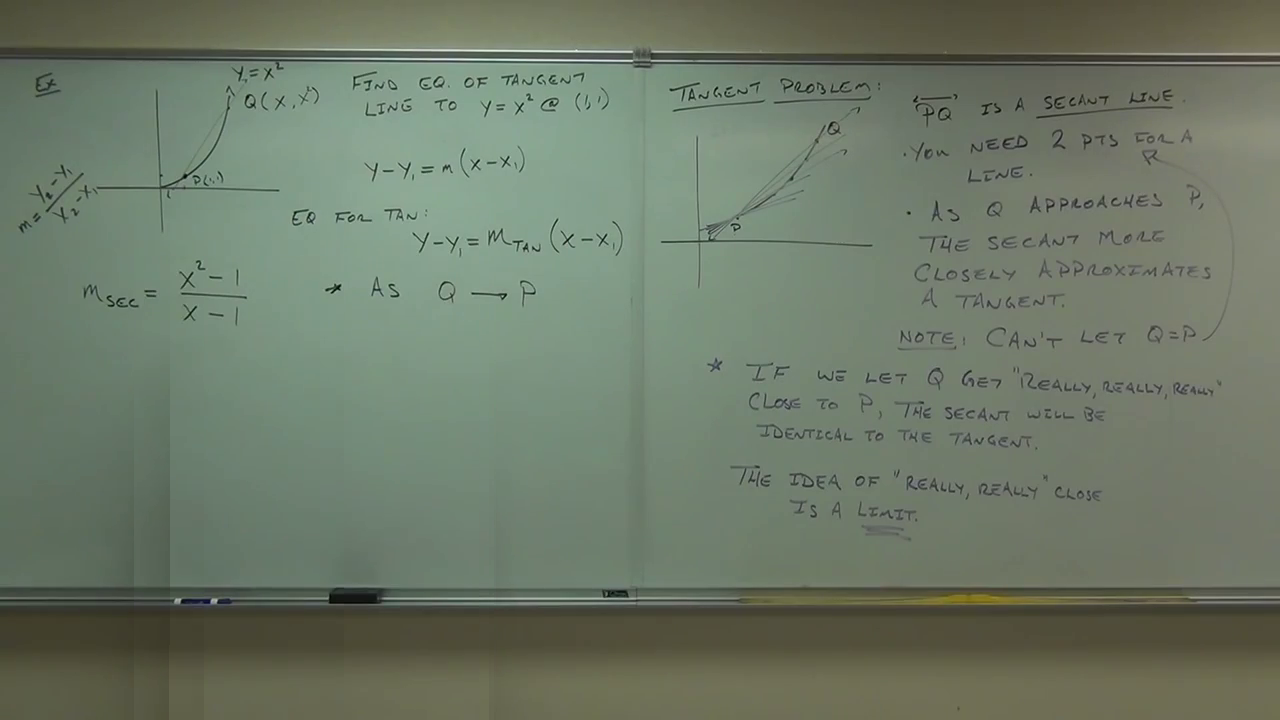 Ex
Y=X²
Q(X,X²)
P(1,1)
m = Y₂-Y₁ / X₂-X₁
FIND EQ. OF TANGENT
LINE TO Y=X² @ (1,1)
Y-Y₁=m(X-X₁)
EQ FOR TAN:
Y-Y₁=m TAN (X-X₁)
m SEC = X²-1 / X-1
* AS Q → P
TANGENT PROBLEM:
Q
P
PQ IS A SECANT LINE.
·YOU NEED 2 PTS FOR A
LINE.
· AS Q APPROACHES P,
THE SECANT MORE
CLOSELY APPROXIMATES
A TANGENT.
NOTE: CAN'T LET Q=P
* IF WE LET Q GET "REALLY, REALLY, REALLY"
CLOSE TO P, THE SECANT WILL BE
IDENTICAL TO THE TANGENT.
THE IDEA OF "REALLY, REALLY" CLOSE
IS A LIMIT.